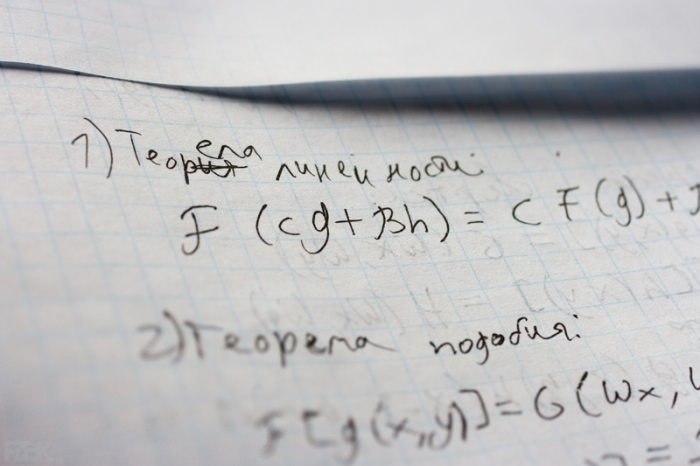 1) Теорема линейности:
F (cg + Bh) = C F(g) +
2) Теорема подобия:
F[g(x,y)] = G(Wx,